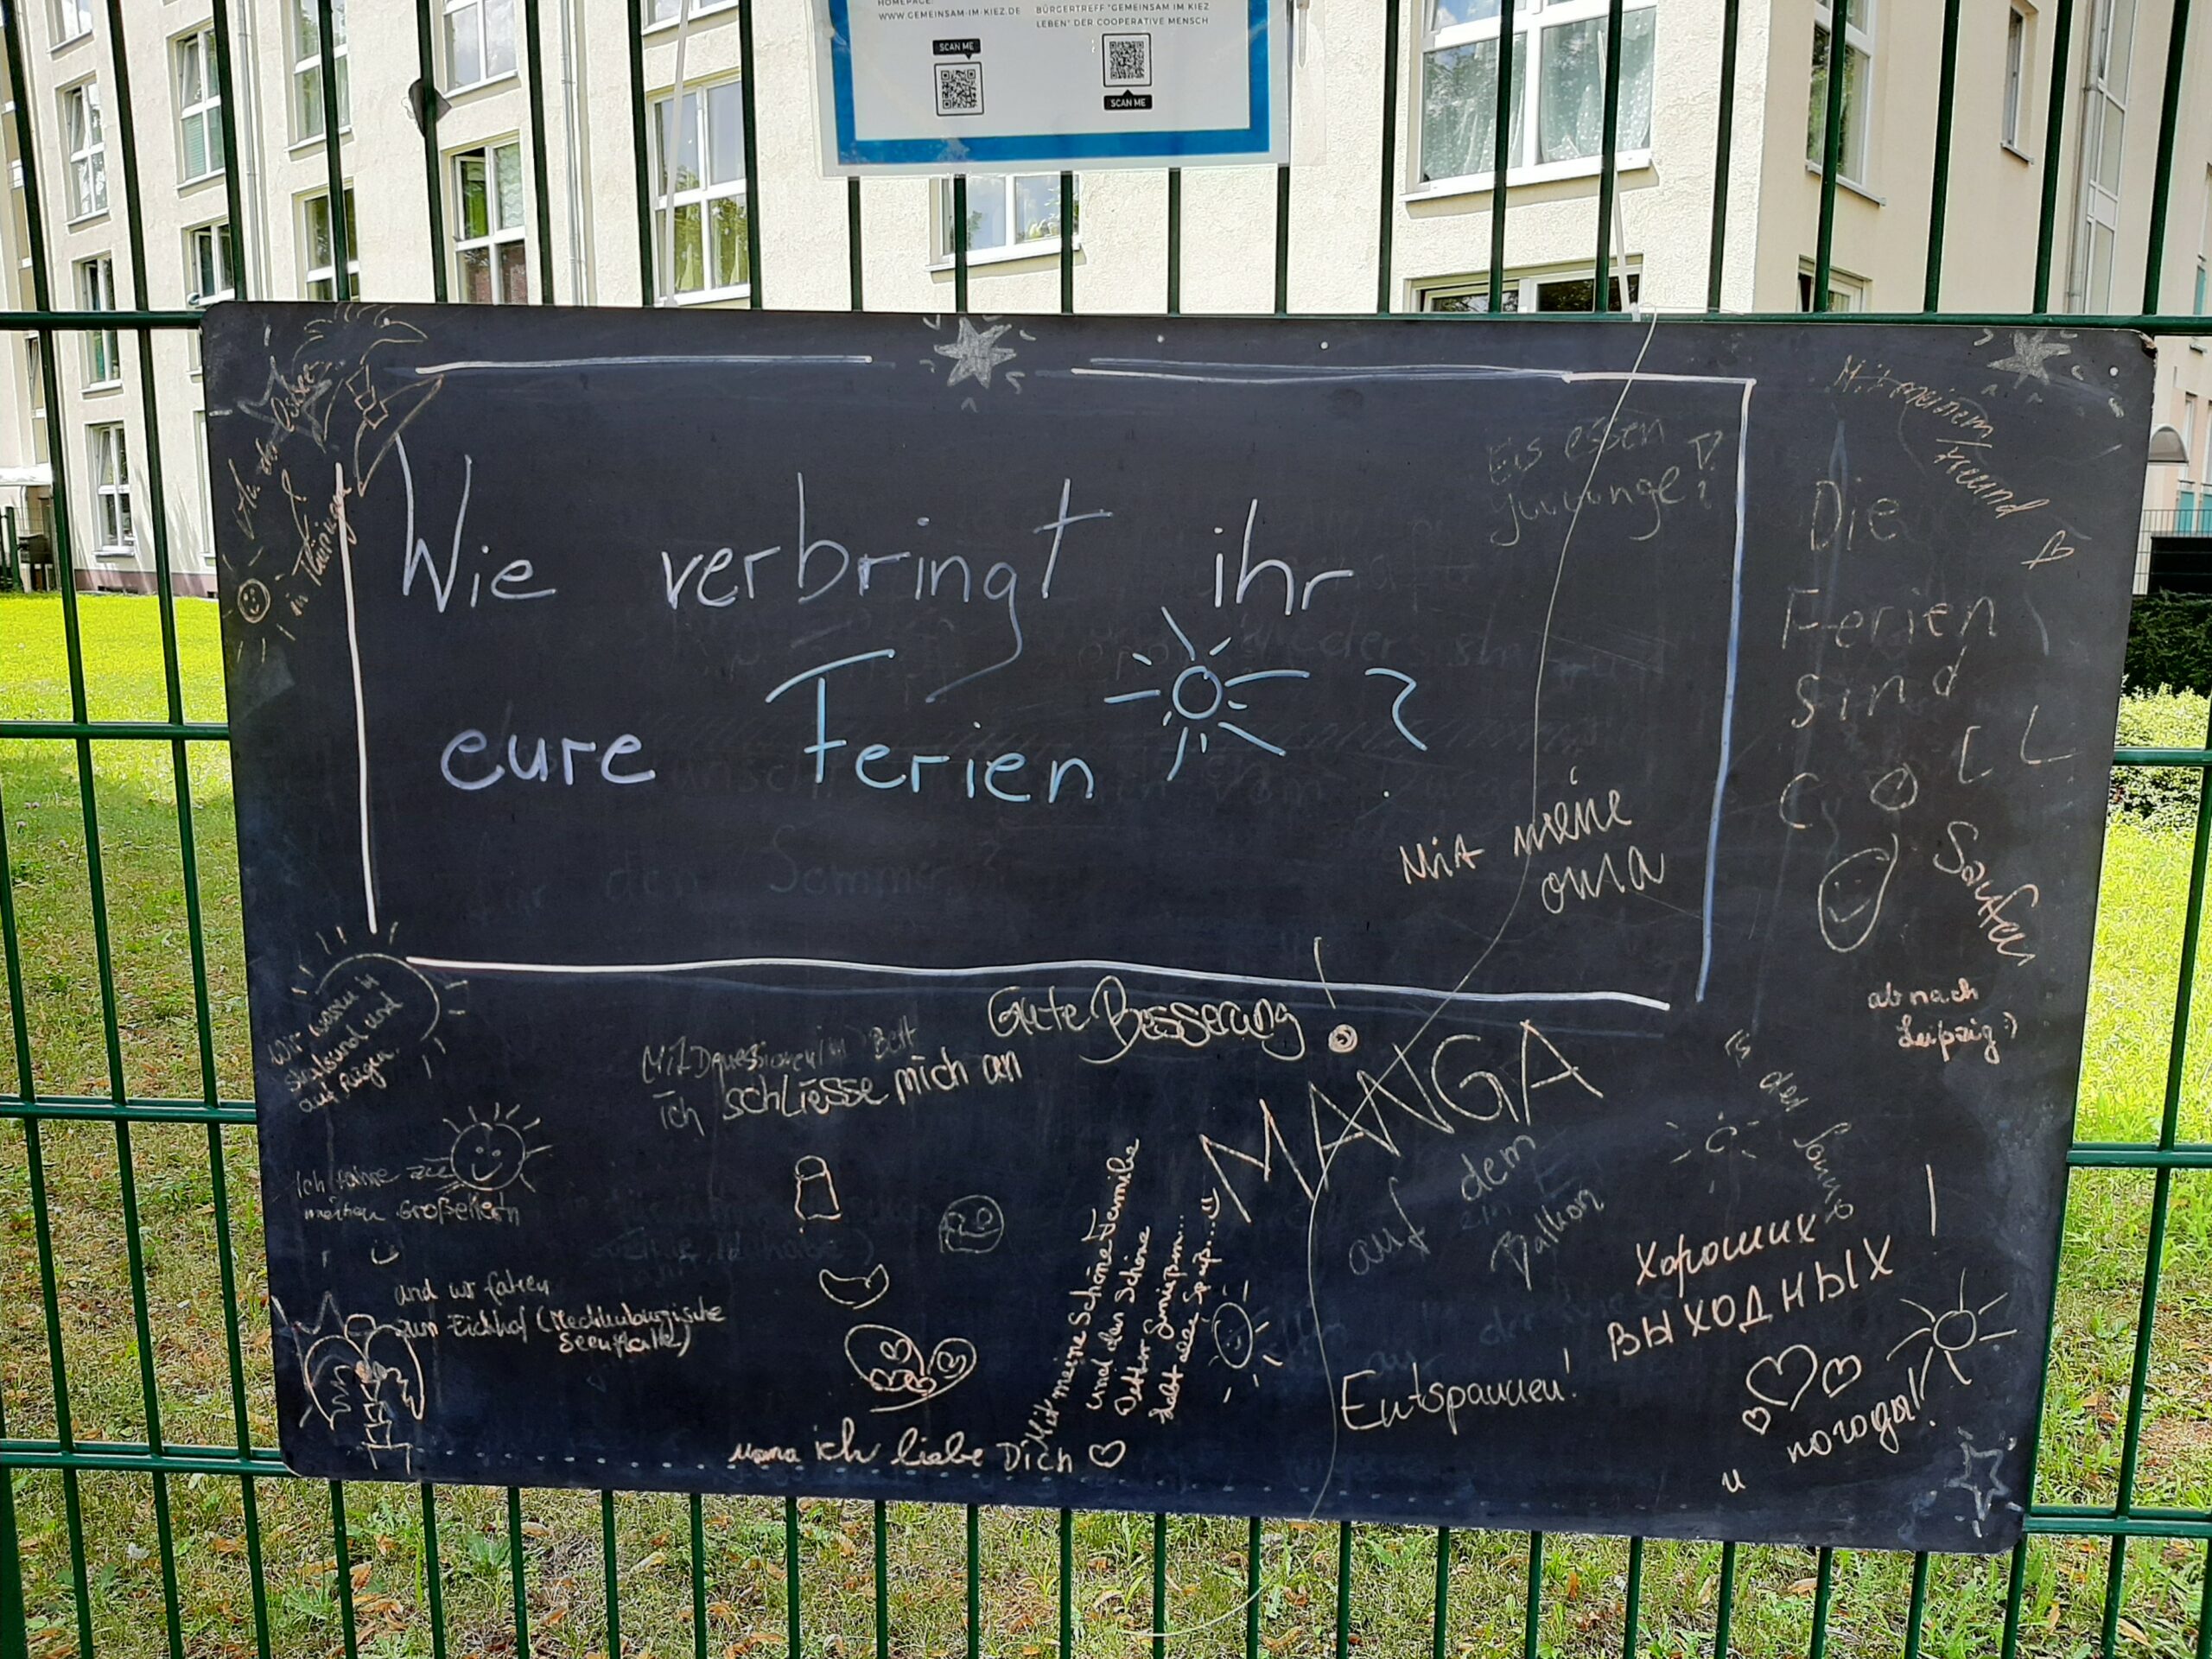 HOMEPAGE:
WWW.GEMEINSAM-IM-KIEZ.DE
BÜRGERTREFF "GEMEINSAM IM KIEZ
LEBEN" DER COOPERATIVE MENSCH
SCAN ME
SCAN ME
An der Ostsee
&
in Thüringen
Wie verbringt ihr
eure Ferien ?
Eis essen
Juuuunge!
Mit meine
oma
Mit meinem
Freund
Die
Ferien
sind
COLL
Saufen
ab nach
Leipzig :)
Wir waren in
Stralsund und
auf Rügen.
Gute Besserung!
Mit Depressionen im Bett
ich schliesse mich an
MANGA
auf dem
Balkon
In der Sonne
Ich fahre zu
meinen Großeltern
und wir fahren
zum Eichhof (Mecklenburgische
Seenplatte)
Mit meine Schöne Familie
und den Schöne
Habt alle Spaß...
Entspannen!
Хороших
ВЫХОДНЫХ !
и погоды!
Mama ich liebe Dich